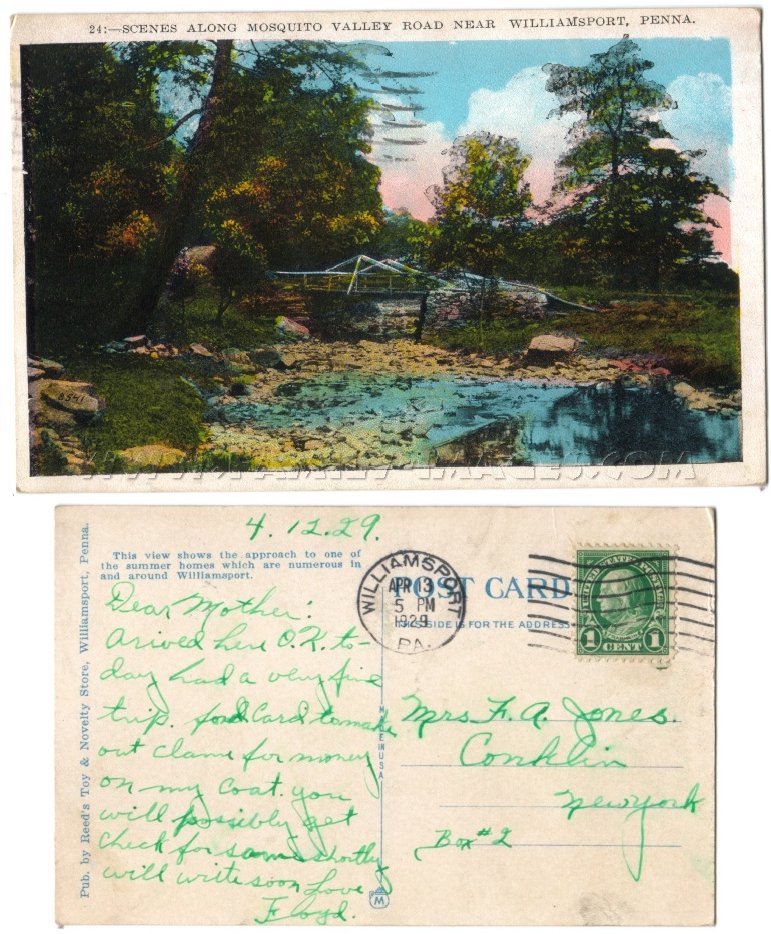 24:—SCENES ALONG MOSQUITO VALLEY ROAD NEAR WILLIAMSPORT, PENNA.
8541
WWW.FAMILY-IMAGES.COM
4.12.29.
This view shows the approach to one of
the summer homes which are numerous in
and around Williamsport.
Dear Mother:
Arived here O.K. to-
day had a very fine
trip. Card to make
out clame for money
on my coat. you
will possibly get
check for same shortly
will write soon Love
Floyd.
Pub. by Reed's Toy & Novelty Store, Williamsport, Penna.
MADE IN USA
M
WILLIAMSPORT
APR 13
5 PM
1929
PA.
POST CARD
THIS SIDE IS FOR THE ADDRESS
UNITED STATES POSTAGE
1 CENT 1
Mrs. F. A. Jones.
Conklin
New York
Box #2